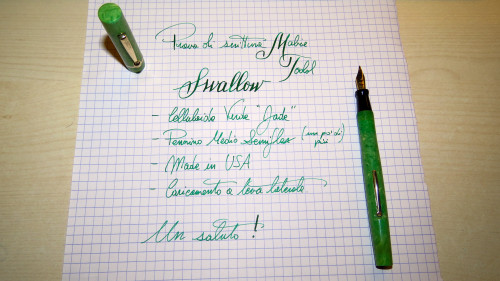 Prova di scrittura Mabie
Todd
Swallow
- Celluloide Verde "Jade"
- Pennino Medio Semiflex (una po' di più)
- Made in USA
- Caricamento a leva laterale
Un saluto!